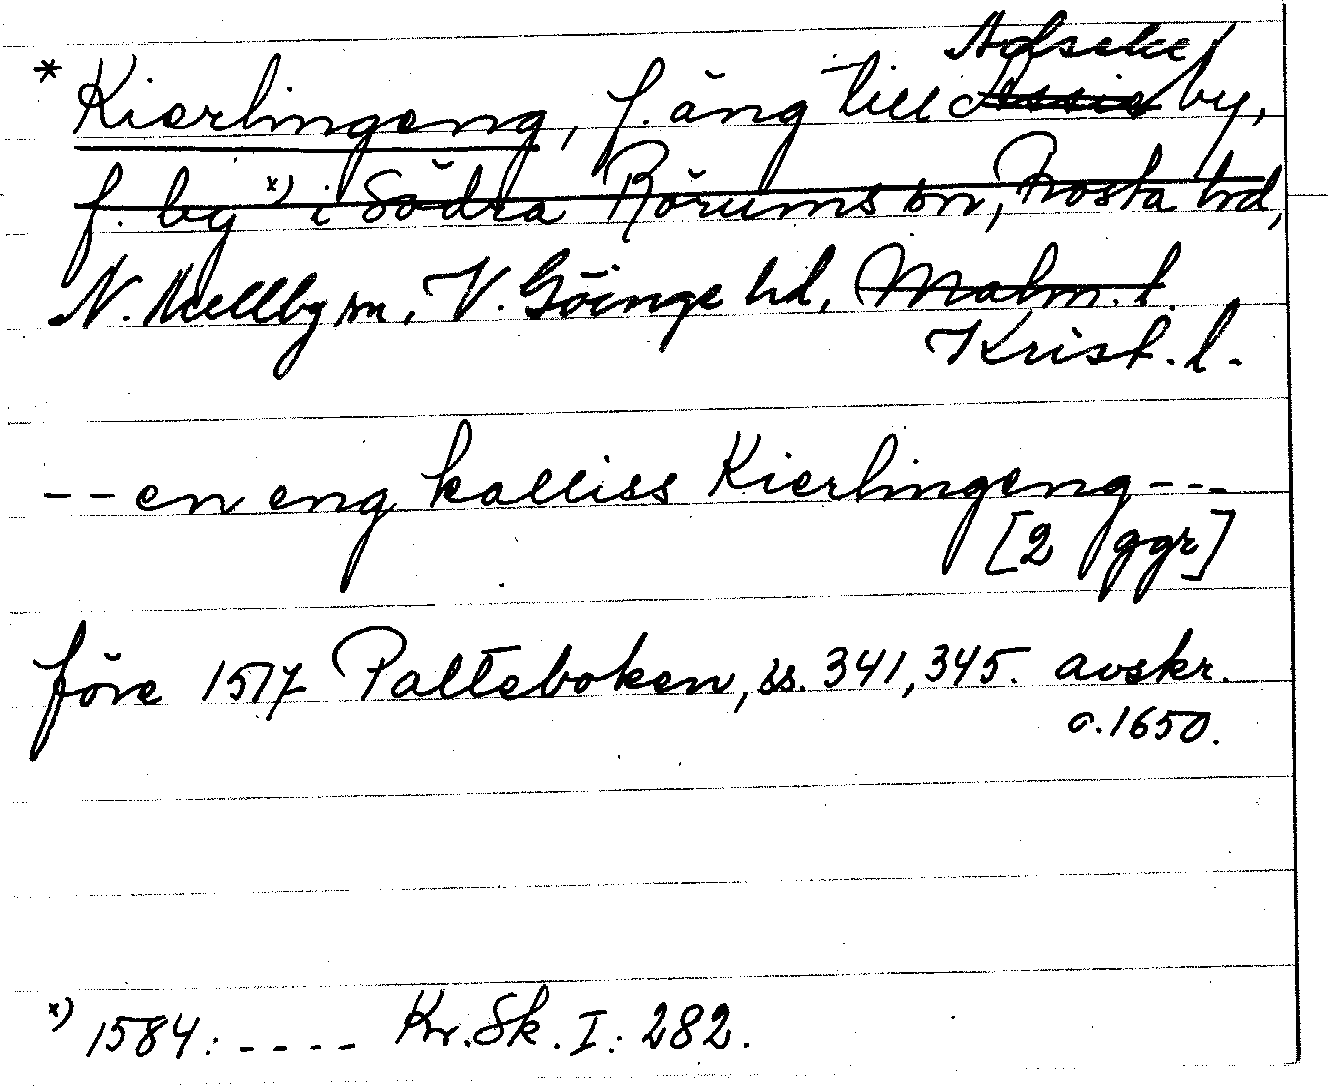 Adseke
* Kierlingeng, f. äng till Assie by,
f. by x) i Södra Rörums sn, Frosta hd,
N. Mellby sn, V. Göinge hd, Malm. l.
Krist. l.
-- en eng kalliss Kierlingeng ---
[2 ggr]
före 1517 Palteboken, ss. 341, 345. avskr.
c. 1650.
x) 1584: ---- Kr. Sk. I: 282.